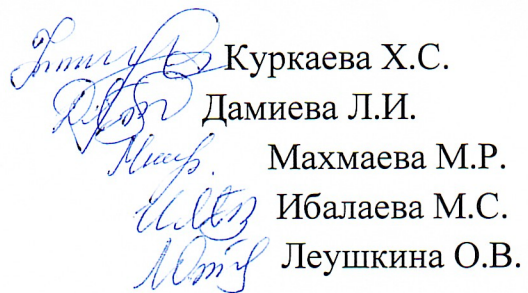 Куркаева Х.С.
Дамиева Л.И.
Махмаева М.Р.
Ибалаева М.С.
Леушкина О.В.